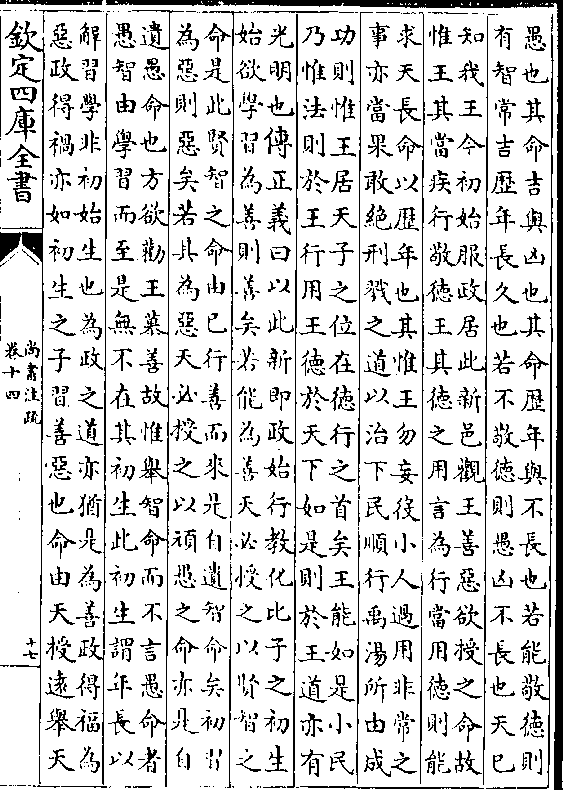 愚也其命吉與凶也其命歷年與不長也若能敬德則
有智常吉歷年長久也若不敬德則愚凶不長也天已
知我王今初始服政居此新邑觀王善惡欲授之命故
惟王其當疾行敬德王其德之用言為行當用德則能
求天長命以歷年也其惟王勿妄役小人過用非常之
事亦當果敢絕刑戮之道以治下民順行禹湯所由成
功則惟王居天子之位在德行之首矣王能如是小民
乃惟法則於王行用王德於天下如是則於王道亦有
光明也傳正義曰以此新即政始行教化比子之初生
始欲學習為善則善矣若能為善天必授之以賢智之
命是此賢智之命由已行善而來是自遺智命矣初習
為惡則惡矣若其為惡天必授之以頑愚之命亦是自
遺愚命也方欲勸王慕善故惟舉智命而不言愚命者
愚智由學習而至是無不在其初生此初生謂年長以
解習學非初始生也為政之道亦猶是為善政得福為
惡政得禍亦如初生之子習善惡也命由天授遠舉天
欽定四庫全書
尚書注疏
卷十四
十七